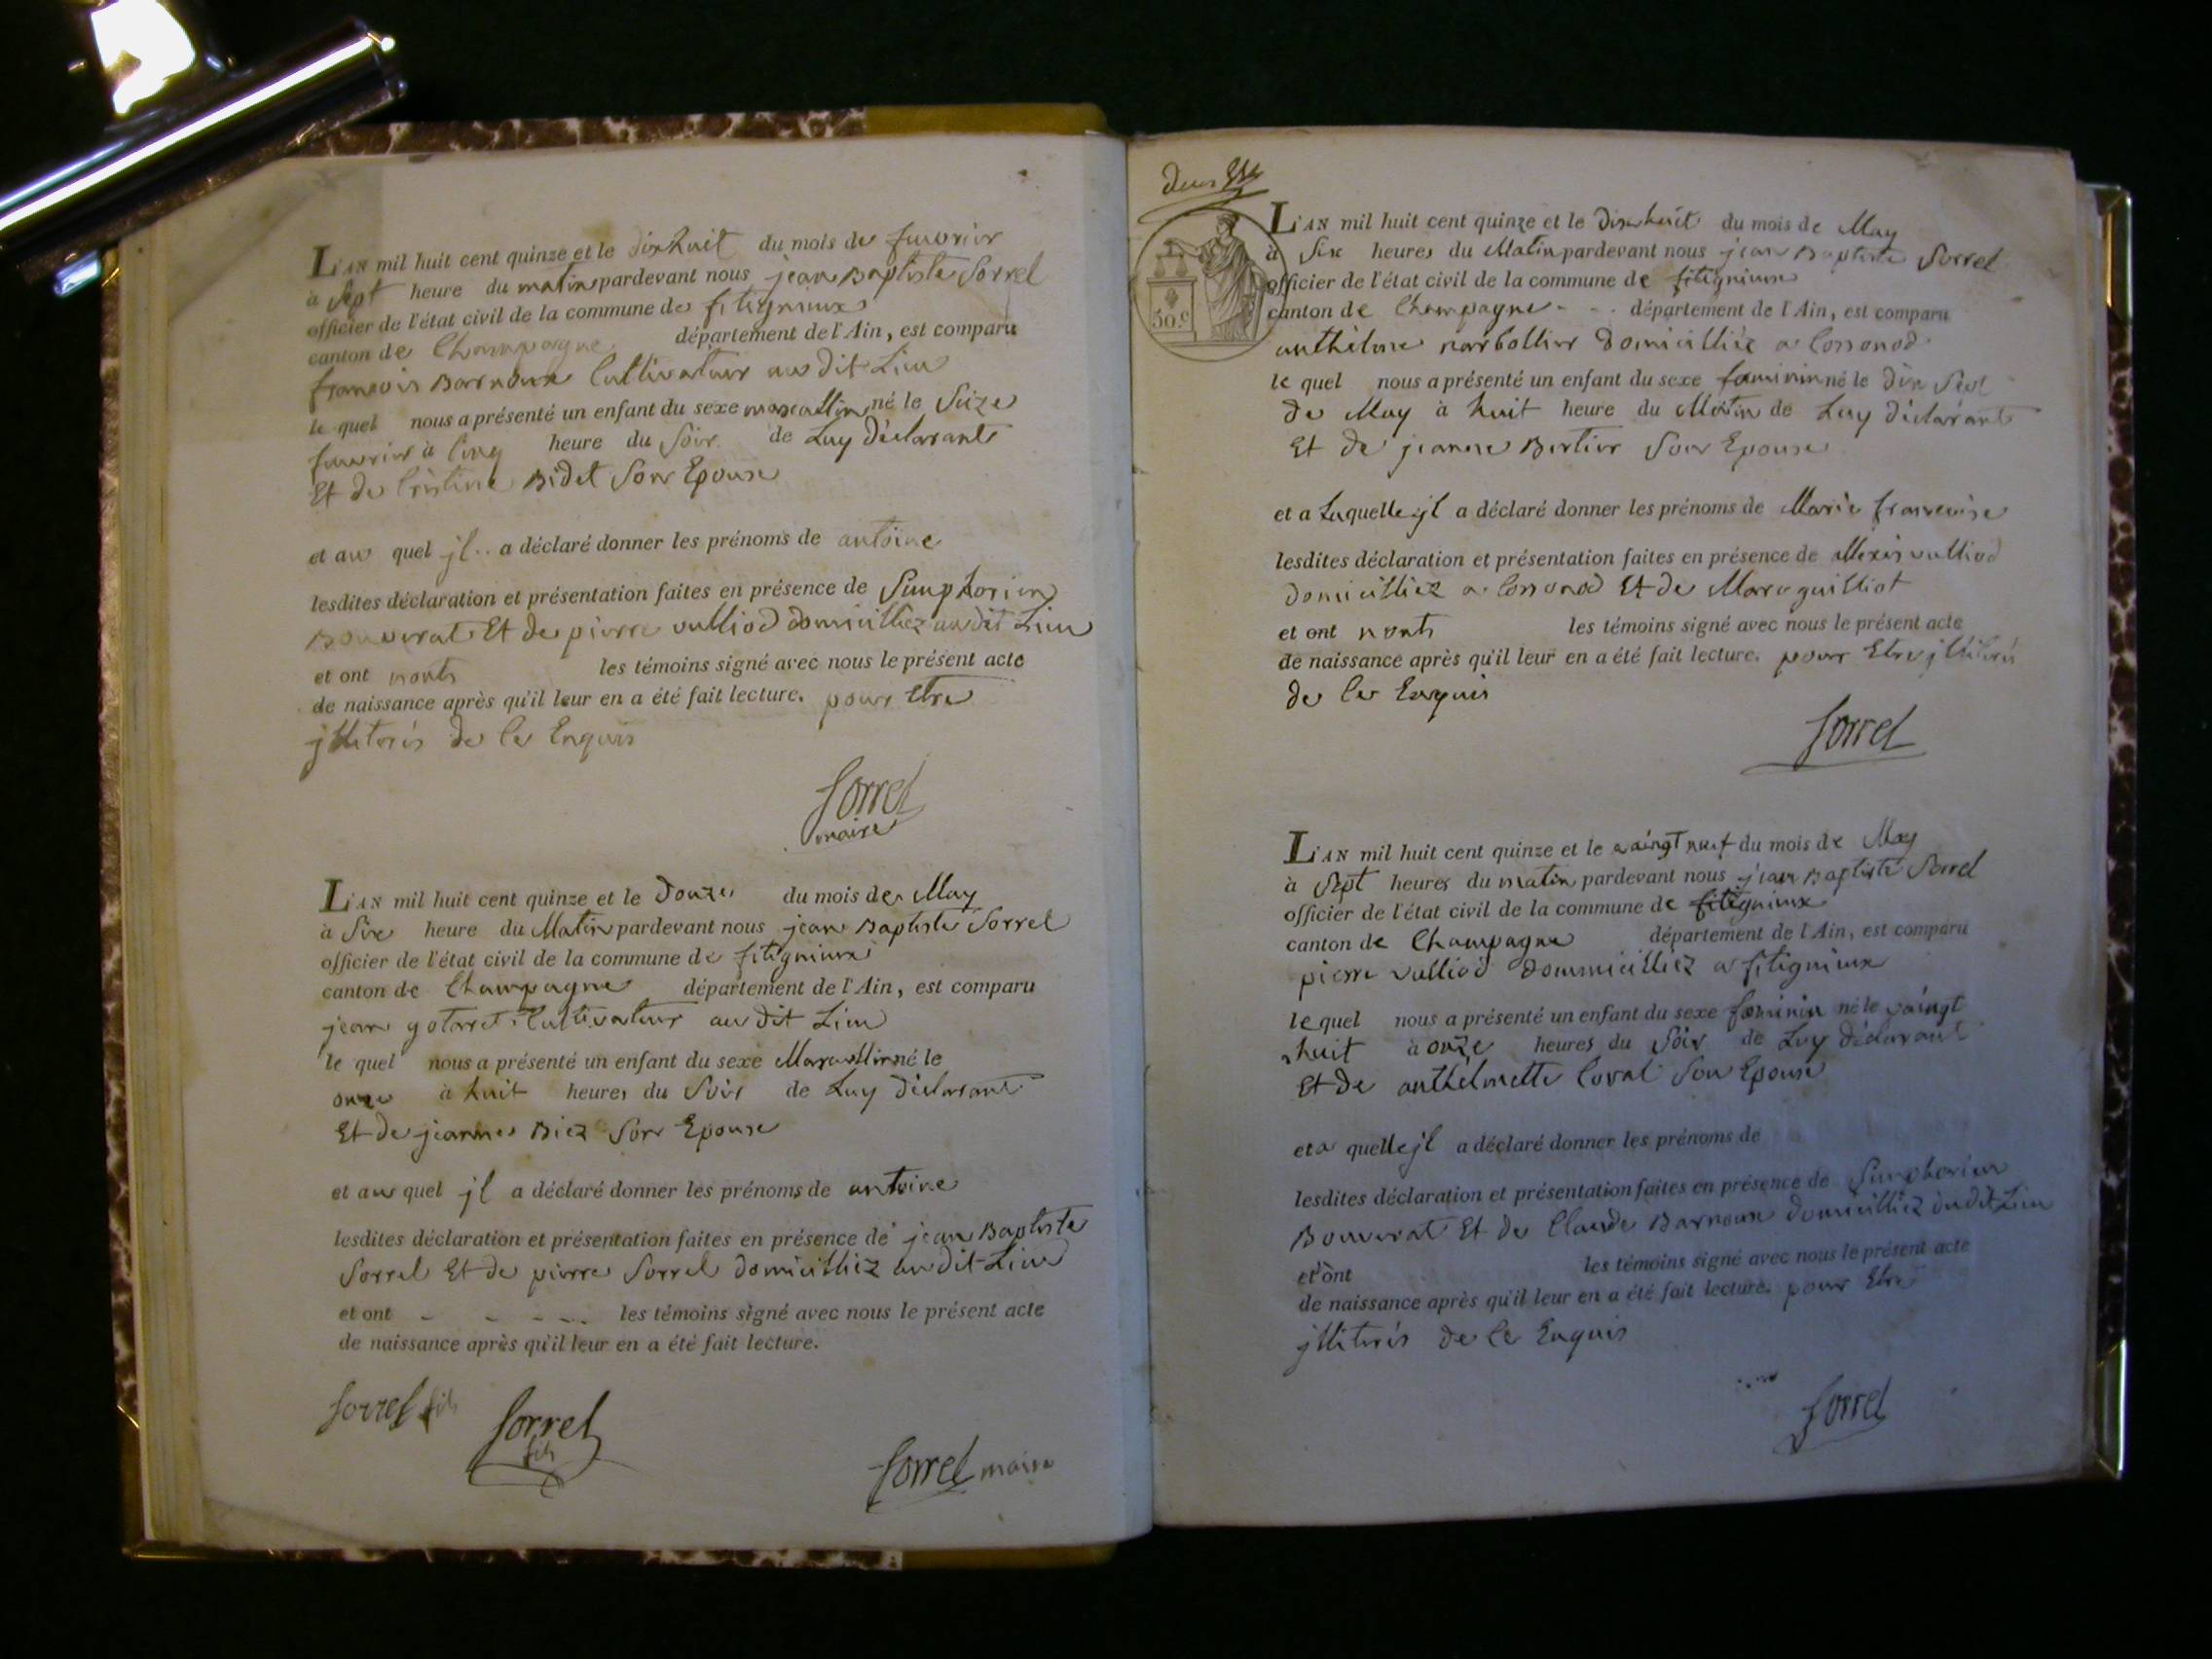 L'AN mil huit cent quinze et le dixhuit du mois de fuuvrier
à Sept heure du matin pardevant nous jean Baptiste Sorrel
officier de l'état civil de la commune de fitignieux
canton de Champagne département de l'Ain, est comparu
françois Barnoux Cultivateur au dit Lieu
le quel nous a présenté un enfant du sexe mascullin né le Seize
fuuvrier à Cinq heure du Soir de Luy déclarant
Et de Cristine Bidet Son Epouse
et au quel jl a déclaré donner les prénoms de antoine
lesdites déclaration et présentation faites en présence de Simphorien
Bouverat Et de pierre vulliod domicilliez au dit Lieu
et ont nonts les témoins signé avec nous le présent acte
de naissance après qu'il leur en a été fait lecture. pour Etre
jllitérés de Ce Enquis
Sorrel
maire
L'AN mil huit cent quinze et le Douze du mois de May
à Six heure du Matin pardevant nous jean Baptiste Sorrel
officier de l'état civil de la commune de fitignieux
canton de Champagne département de l'Ain, est comparu
jean gotaret Cultivateur au dit Lieu
le quel nous a présenté un enfant du sexe Mascullin né le
onze à huit heures du Soir de Luy déclarant
Et de jeanne Biez Son Epouse
et au quel jl a déclaré donner les prénoms de antoine
lesdites déclaration et présentation faites en présence de jean Baptiste
Sorrel Et de pierre Sorrel domicilliez au dit Lieu
et ont - - - - les témoins signé avec nous le présent acte
de naissance après qu'il leur en a été fait lecture.
Sorrel fils
Sorrel
fils
Sorrel maire
50.c
L'AN mil huit cent quinze et le Dixhuit du mois de May
à Six heures du Matin pardevant nous jean Baptiste Sorrel
officier de l'état civil de la commune de fitignieux
canton de Champagne - - . département de l'Ain, est comparu
anthelme narbollier Domicilliéz a Cossonod
le quel nous a présenté un enfant du sexe feminin né le Dix Sept
de May à huit heure du Matin de Luy déclarant
Et de jeanne Bertier Son Epouse
et a Laquelle jl a déclaré donner les prénoms de Marie franscoise
lesdites déclaration et présentation faites en présence de Alexis vulliod
domicilliez a Cossonod Et de Marc guilliot
et ont nonts les témoins signé avec nous le présent acte
de naissance après qu'il leur en a été fait lecture. pour Etre jllitérés
de Ce Enquis
Sorrel
L'AN mil huit cent quinze et le vaingt neuf du mois de May
à Sept heures du matin pardevant nous jean Baptiste Sorrel
officier de l'état civil de la commune de fitignieux
canton de Champagne département de l'Ain, est comparu
pierre vulliod Dommicilliez a fitignieux
le quel nous a présenté un enfant du sexe feminin né le vaingt
huit à onze heures du Soir de Luy déclarant
Et de anthelmette Coval Son Epouse
et a quelle jl a déclaré donner les prénoms de
lesdites déclaration et présentation faites en présence de Simphorien
Bouverat Et de Claude Barnoux domicilliez audit Lieu
et ont les témoins signé avec nous le présent acte
de naissance après qu'il leur en a été fait lecture. pour Etre
jllitérés de Ce Enquis
Sorrel